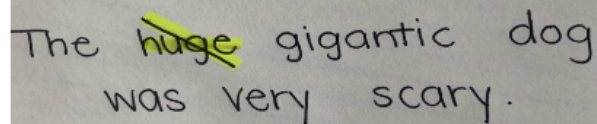 The huge gigantic dog
was very scary.